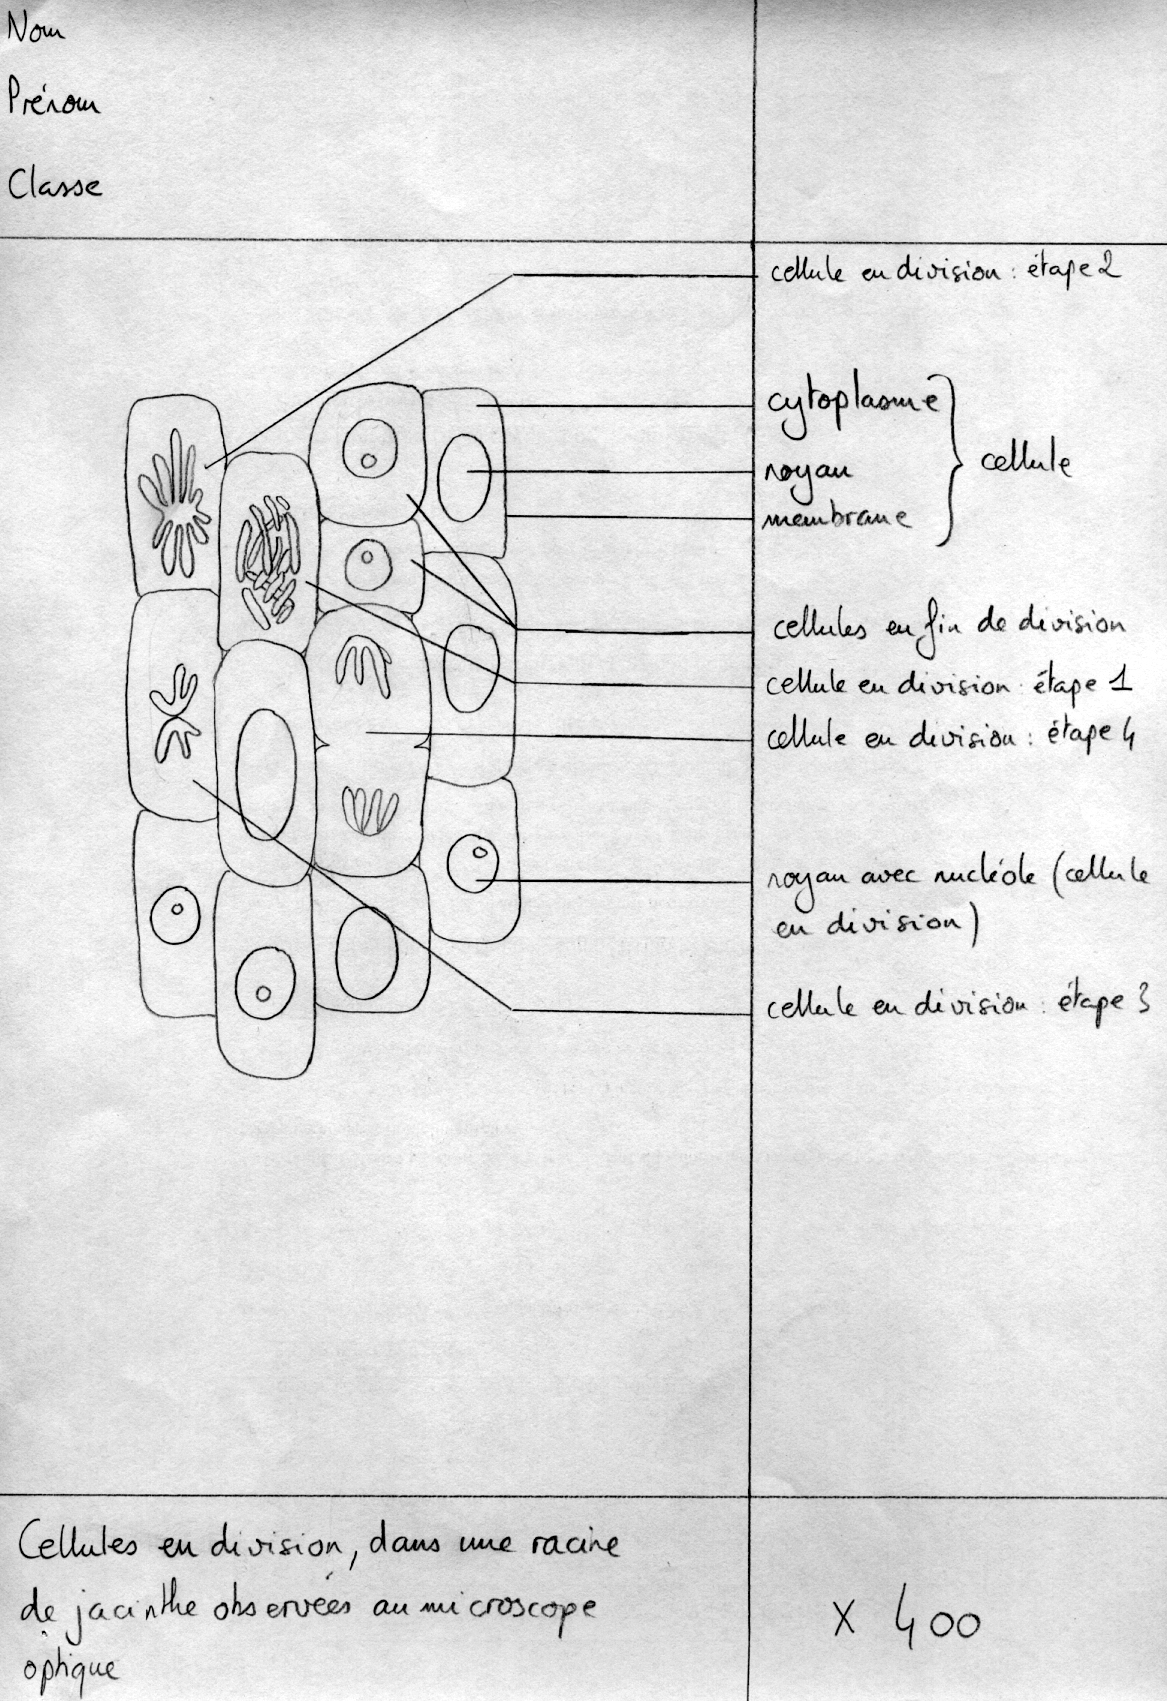 Nom
Prénom
Classe
cellule en division : étape 2
cytoplasme
noyau
membrane
cellule
cellules en fin de division
cellule en division : étape 1
cellule en division : étape 4
noyau avec nucléole (cellule
en division)
cellule en division : étape 3
Cellules en division, dans une racine
de jacinthe observées au microscope
optique
x 400